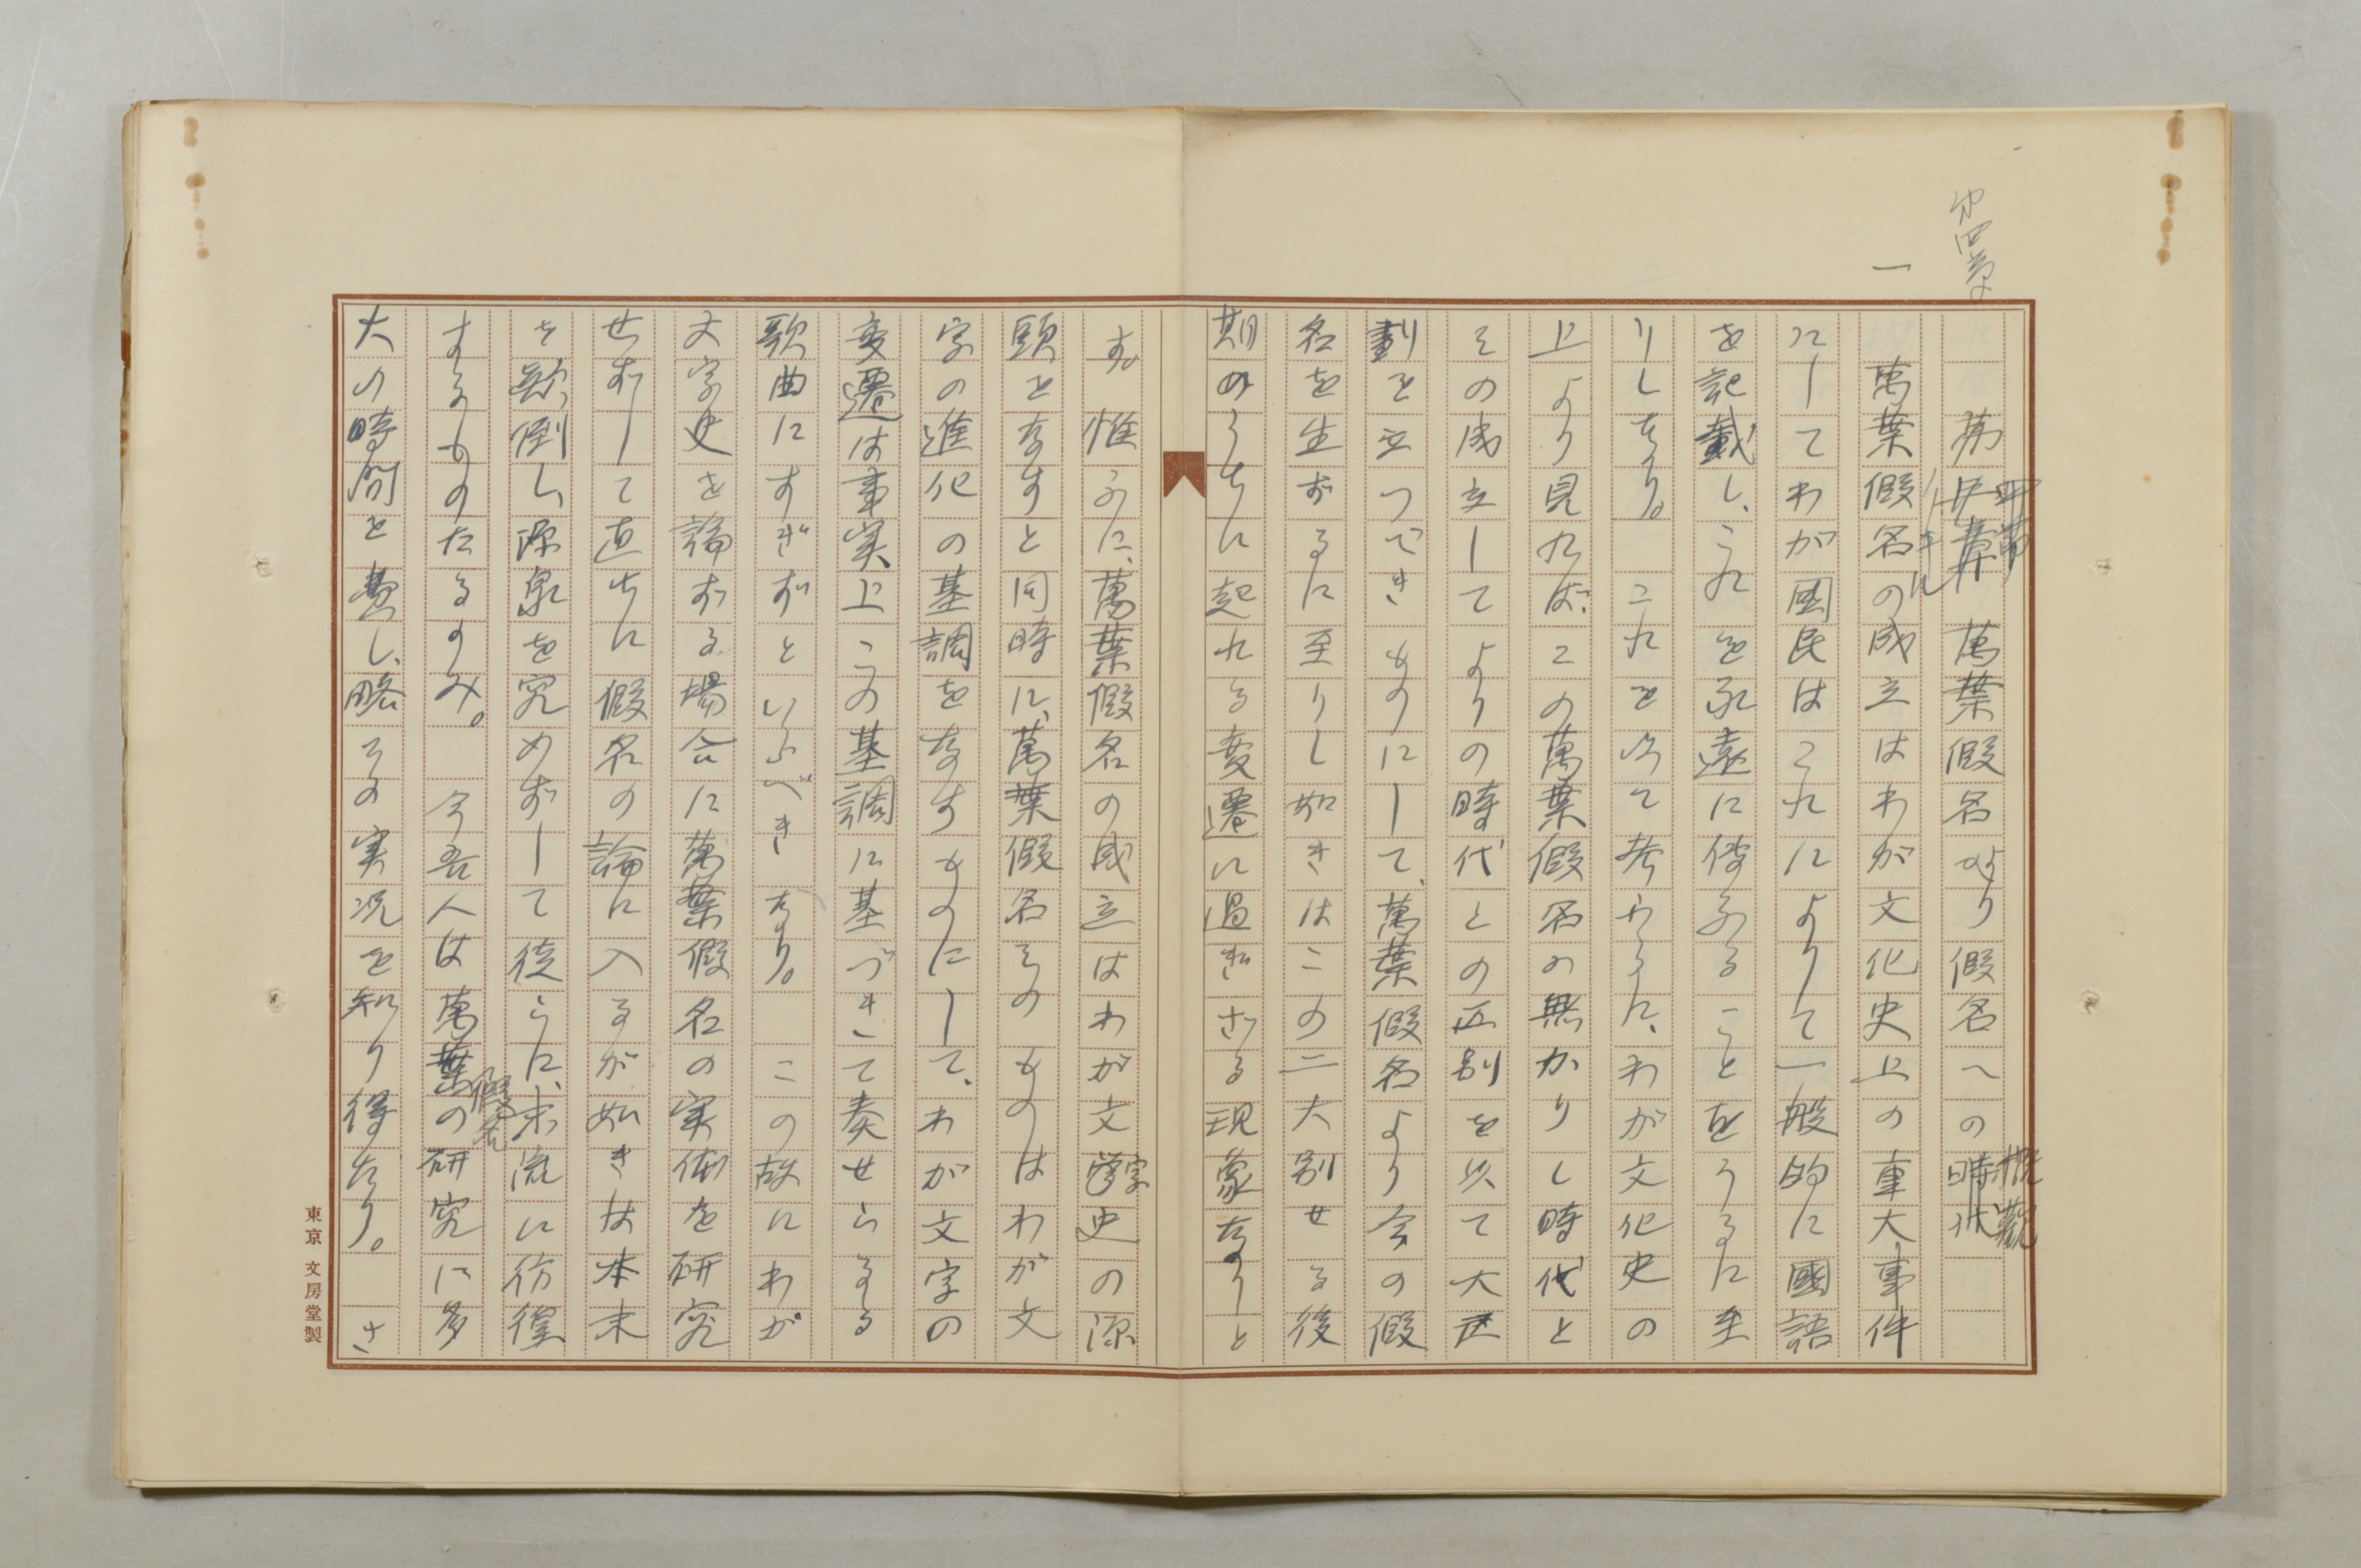 第四章
一
第四章 萬葉假名より假名への概觀
萬葉假名の成立はわが文化史上の重大事件
にしてわが國民はこれによりて一般的に國語
を記載し、これを永遠に傳ふることをうるに至
りしなり。これを以て考ふるに、わが文化史の
上より見れば、この萬葉假名の無かりし時代と
その成立してよりの時代との区別を以て大区
劃を立つべきものにして、萬葉假名より今の假
名を生ずるに至りし如きはこの二大別せる後
期のうちに起れる変遷に過ぎざる現象なりと
す。惟ふに、萬葉假名の成立はわが文字史の源
頭をなすと同時に、萬葉假名そのものはわが文
字の進化の基調をなすものにして、わが文字の
変遷は事実上この基調に基づきて奏せらるる
歌曲にすぎずといふべきなり。この故にわが
文字史を論ずる場合に萬葉假名の実例を研究
せずして直ちに假名の論に入るが如きは本末
を顚倒し、源泉を究めずして徒らに、末流に彷徨
するものたるのみ。今吾人は萬葉假名の研究に多
大の時間を費し、略その実况を知り得たり。さ
東京 文房堂製